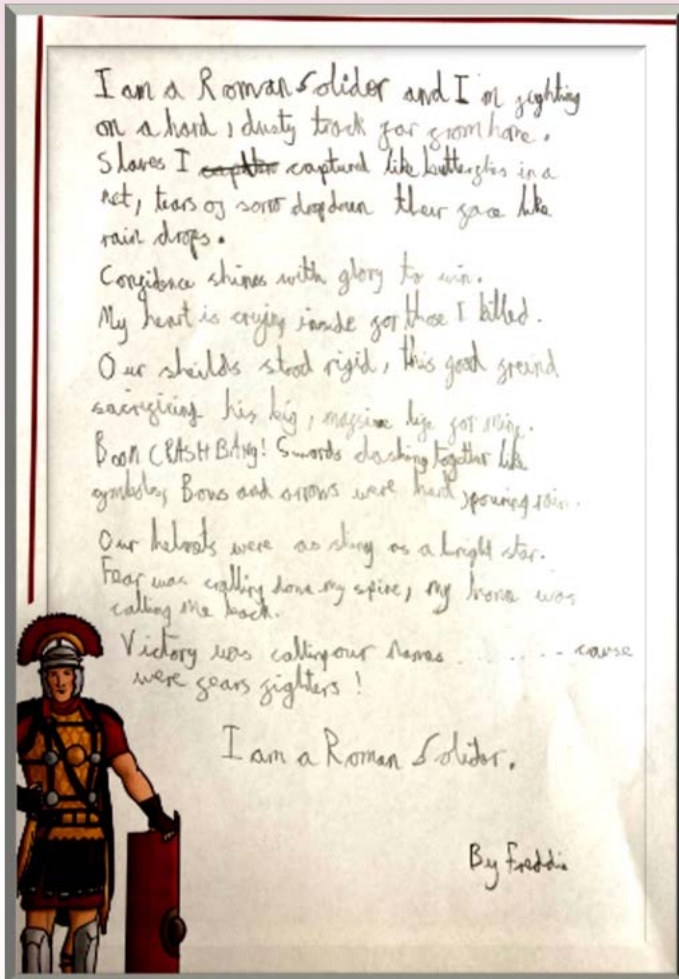 I am a Roman Solider and I'm fighting
on a hard, dusty track far from home.
Slaves I captured like butterflies in a
net, tears of sorro drop down their face like
rain drops.
Confidence shines with glory to win.
My heart is crying inside for those I killed.
Our sheilds stood rigid, this good freind
sacrificing his big, massive life for mine.
Boom CRASH BANG! Swords clashing together like
symboles, Bows and arrows were hard, pouring rain.
Our helmets were as shiny as a bright star.
Fear was cralling done my spine, my home was
calling me back.
Victory was calling our names ........ cause
were fears fighters!
I am a Roman Solider.
By Freddie